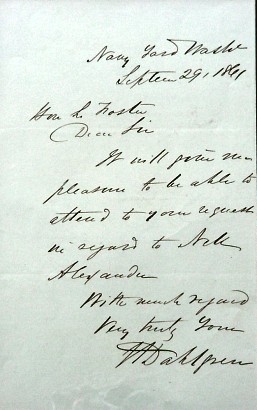 Navy Yard Washn
Septem 29, 1861
Hon L. Foster
Dear Sir
It will give me
pleasure to be able to
attend to your request
in regard to
Alexander
With much regard
Very truly Yours
Dahlgren